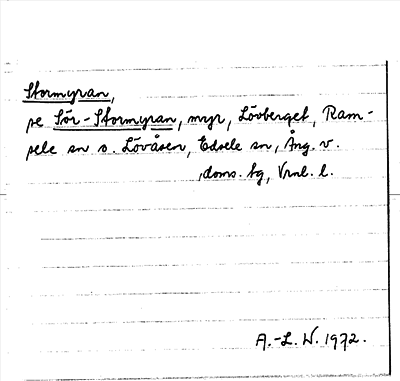 Stormyran,
se Sör-Stormyran, myr, Lövberget, Ram-
sele sn o. Lövåsen, Edsele sn, Ång. v.
doms. tg, Vrnl. l.
A.-L. W. 1972.